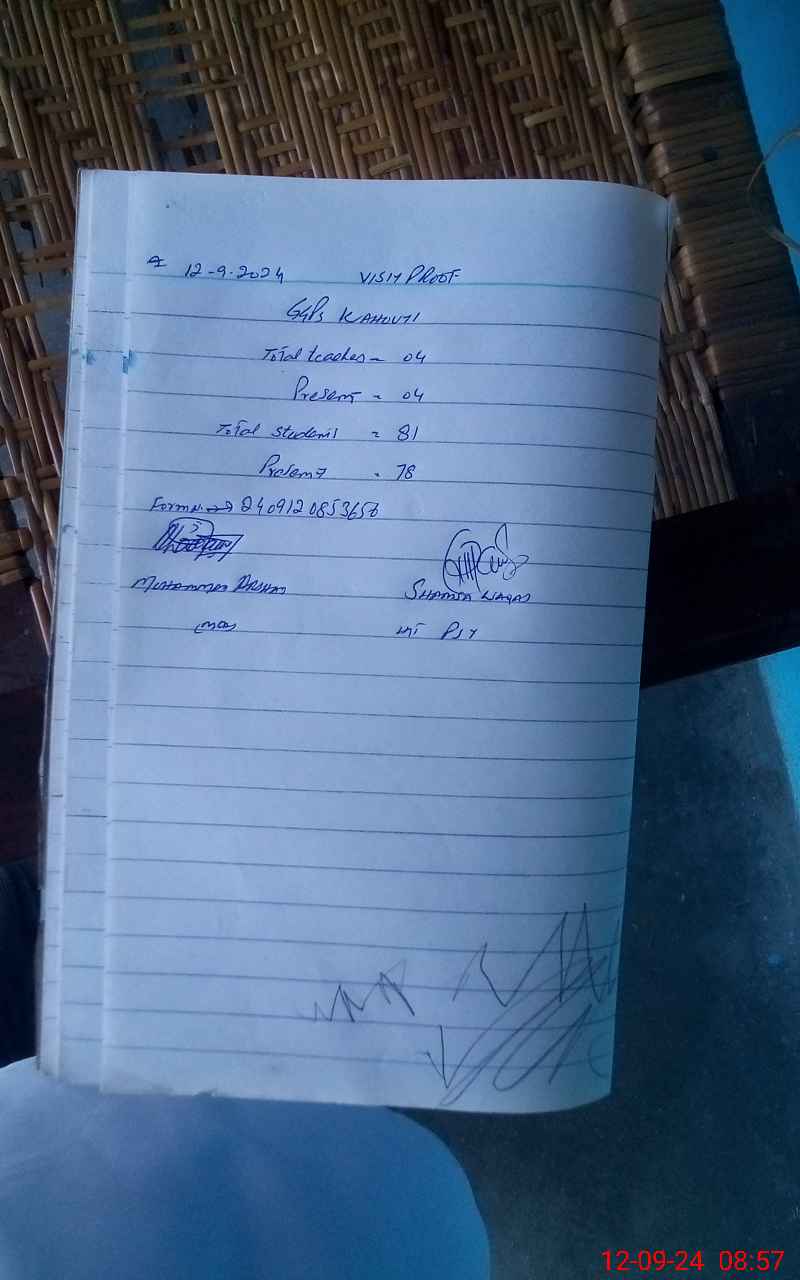 12-9-2024 VISIT PROOF
GGPS KAHOUTI
Total teaches = 04
Present = 04
Total Students = 81
Present = 78
Form No → 2409120853656
MUHAMMAD ARSHAD SHAMSA WAQAS
HT PST
12-09-24 08:57